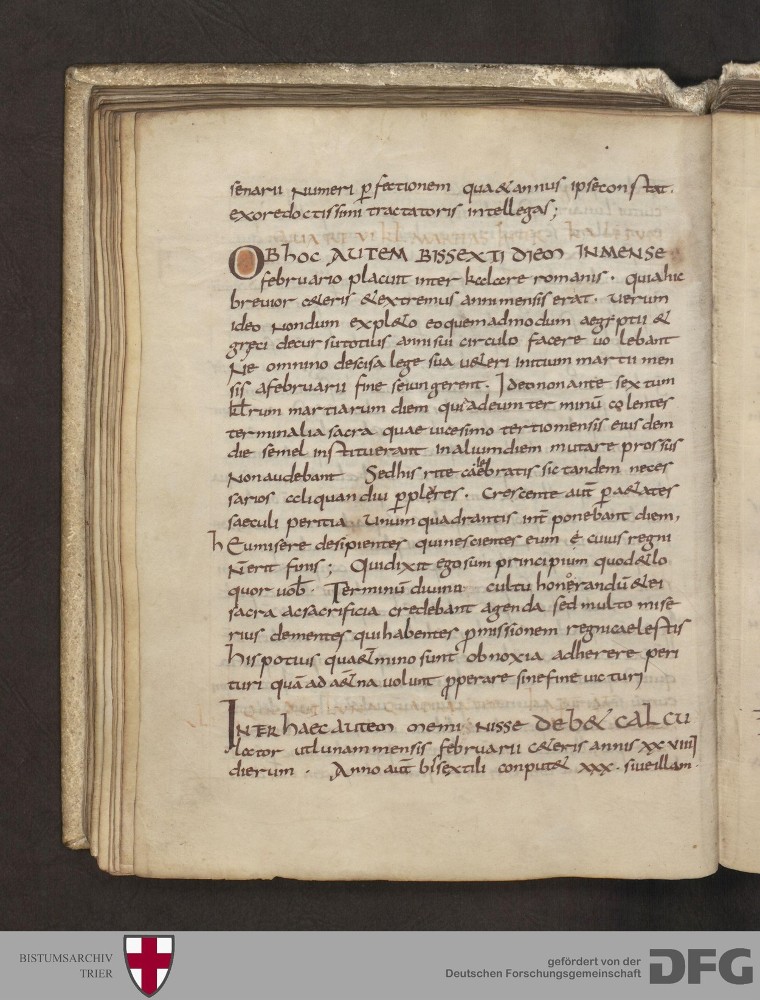 senarii numeri ꝑfectionem qua & annus ipse constat.
ex ore doctissimi tractatoris intellegas;
OB hoc AUTEM BISSEXTI DIEM IN MENSE
februario placuit intercalare romanis. quia hic
brevior c&eris & extremus anni mensis erat. Uerum
ideo nondum expl&o eo quemadmodum aegẏptii &
gręci decursu totius anni sui circulo facere uolebant
Ne omnino descisa lege sua u&eri initium martii men
sis a februarii fine seiungerent. Ideo non ante sextum
kl̅rum martiarum diem qui ad eum terminū colentes
terminalia sacra quae uicesimo tertio mensis eiusdem
die semel instituerant in alium diem mutare prossus
non audebant Sed his rite caelebratis sic tandem neces
sarios aliquandiu ꝑpl&res. Crescente aut̄ ꝑ a&ates
saeculi peritia Unum quadrantis int̄ ponebant diem,
hEu misere desipientes qui nescientes eum ē cuius regni
N̄ erit finis; Qui dixit ego sum principium quod & lo
quor uob̄. Terminū diuino cultu honorandū & ei
sacra ac sacrificia credebant agenda sed multo mise
rius dementes qui habentes ꝓmissionem regni caelestis
his potius quae t̄mino sunt obnoxia adherere peri
turi quā ad a&̄na uolunt ꝓperare sine fine uicturi
INTER haec autem meminisse deb& CALCU
lator ut lunam mensis februarii c&eris annis xxviiii
dierum. Anno aut̄ bisextili conput& xxx. siue illam
BISTUMSARCHIV
TRIER
gefördert von der
Deutschen Forschungsgemeinschaft
DFG